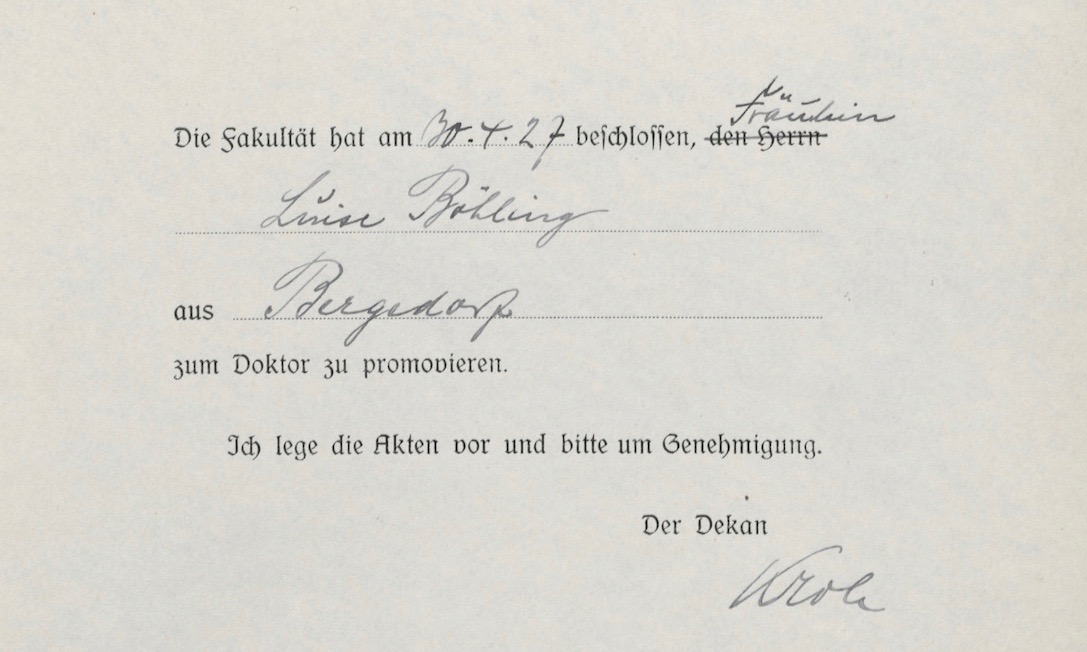 Fräulein
Die Fakultät hat am 30.4.27 beschlossen, den Herrn
Luise Böhling
aus Bergedorf
zum Doktor zu promovieren.
Ich lege die Akten vor und bitte um Genehmigung.
Der Dekan